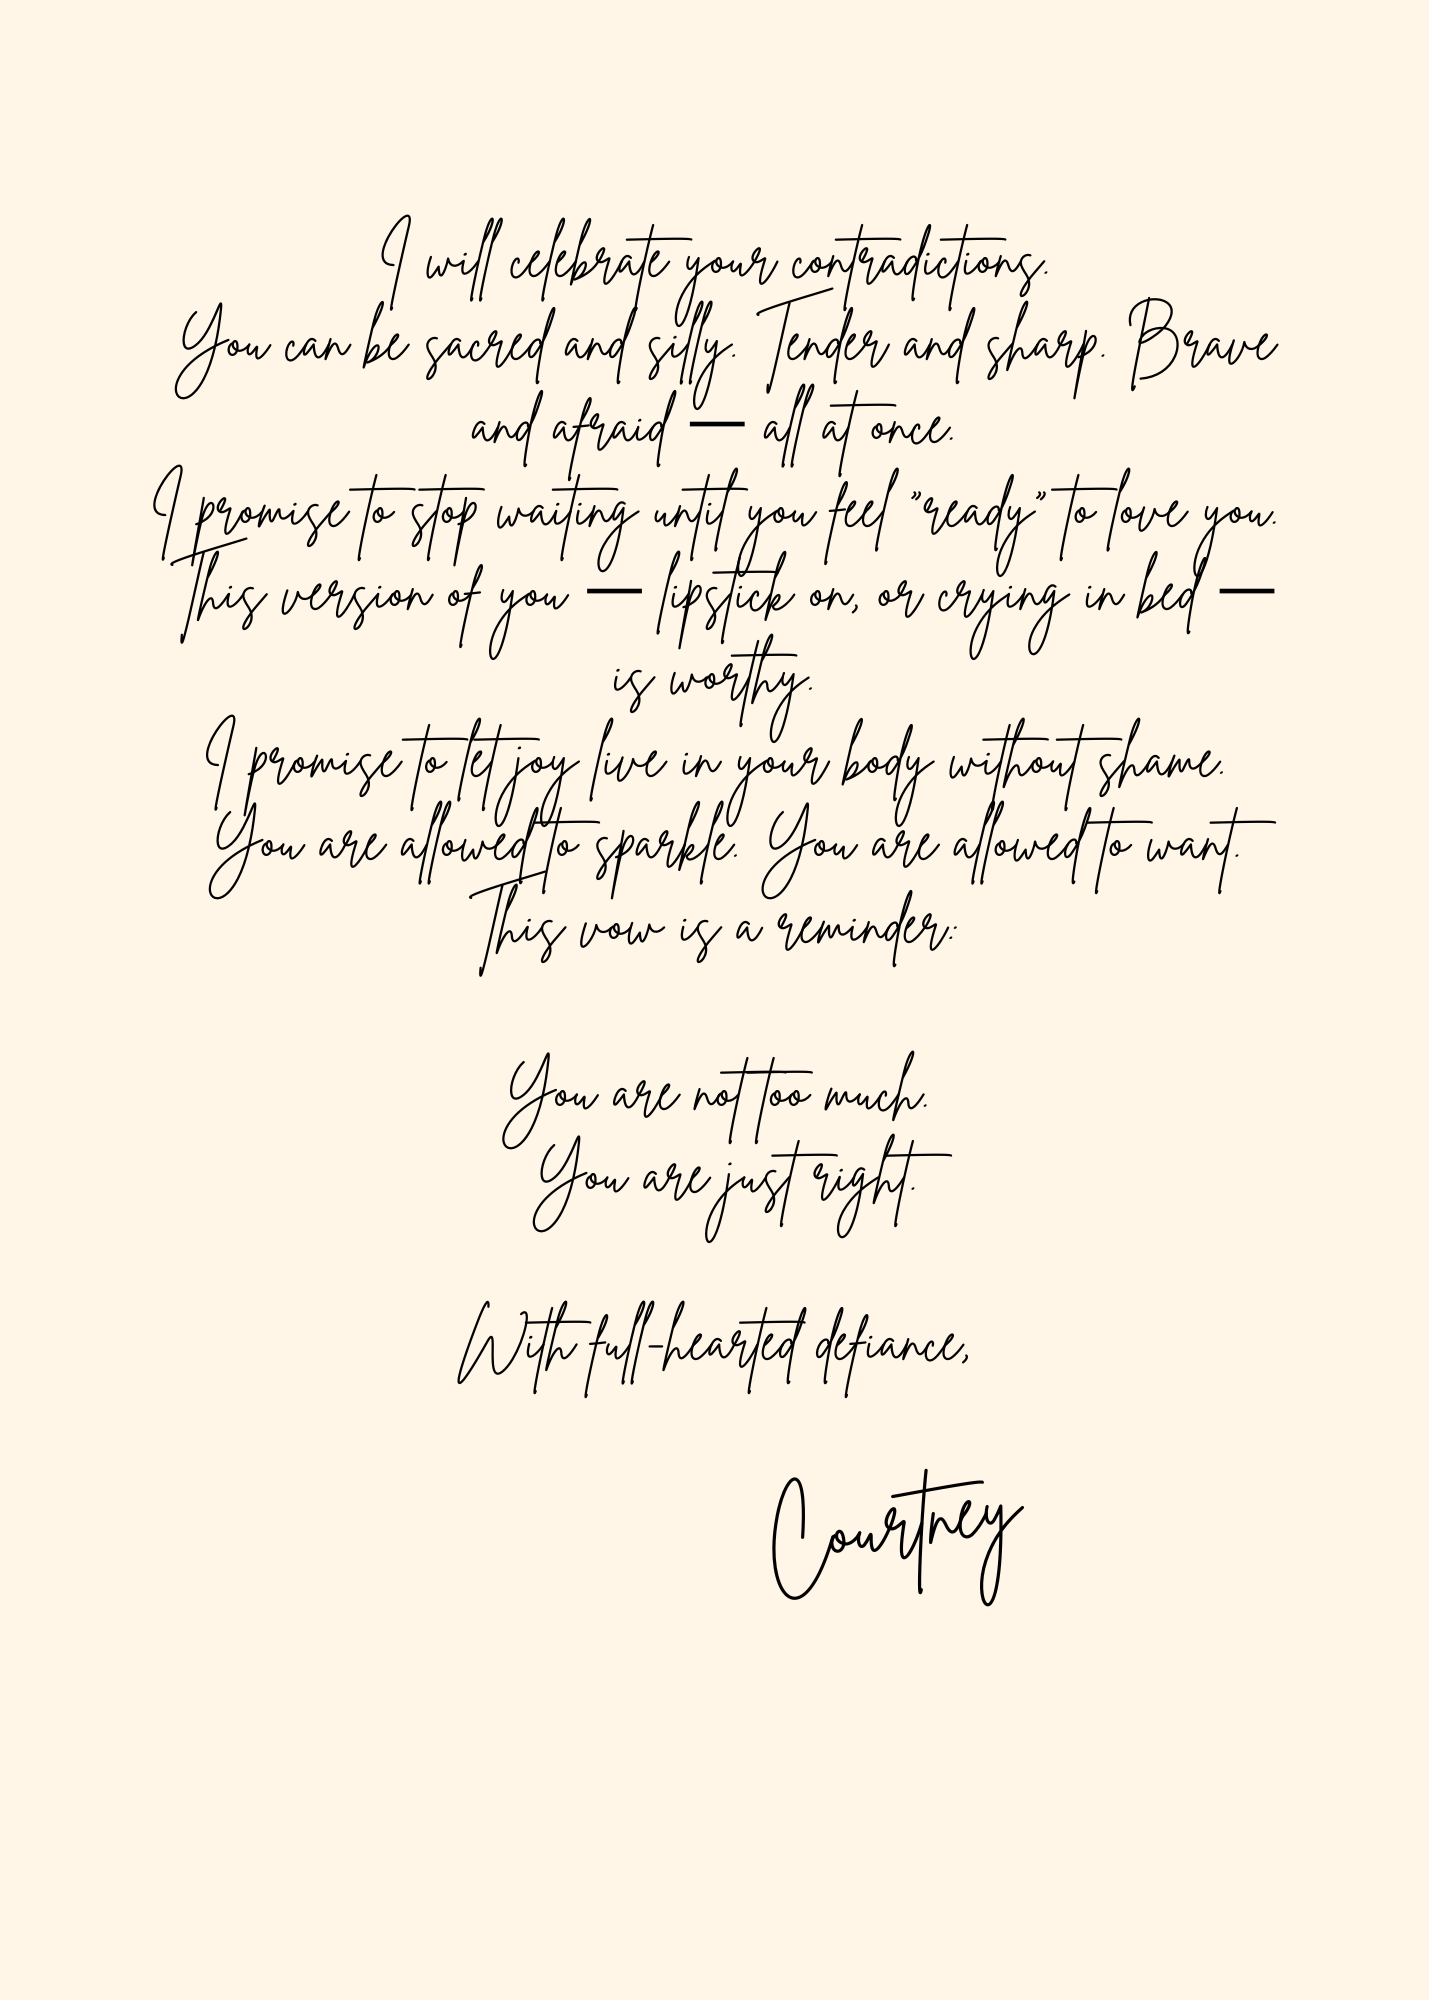 I will celebrate your contradictions.
You can be sacred and silly. Tender and sharp. Brave
and afraid — all at once.
I promise to stop waiting until you feel "ready" to love you.
This version of you — lipstick on, or crying in bed —
is worthy.
I promise to let joy live in your body without shame.
You are allowed to sparkle. You are allowed to want.
This vow is a reminder:
You are not too much.
You are just right.
With full-hearted defiance,
Courtney